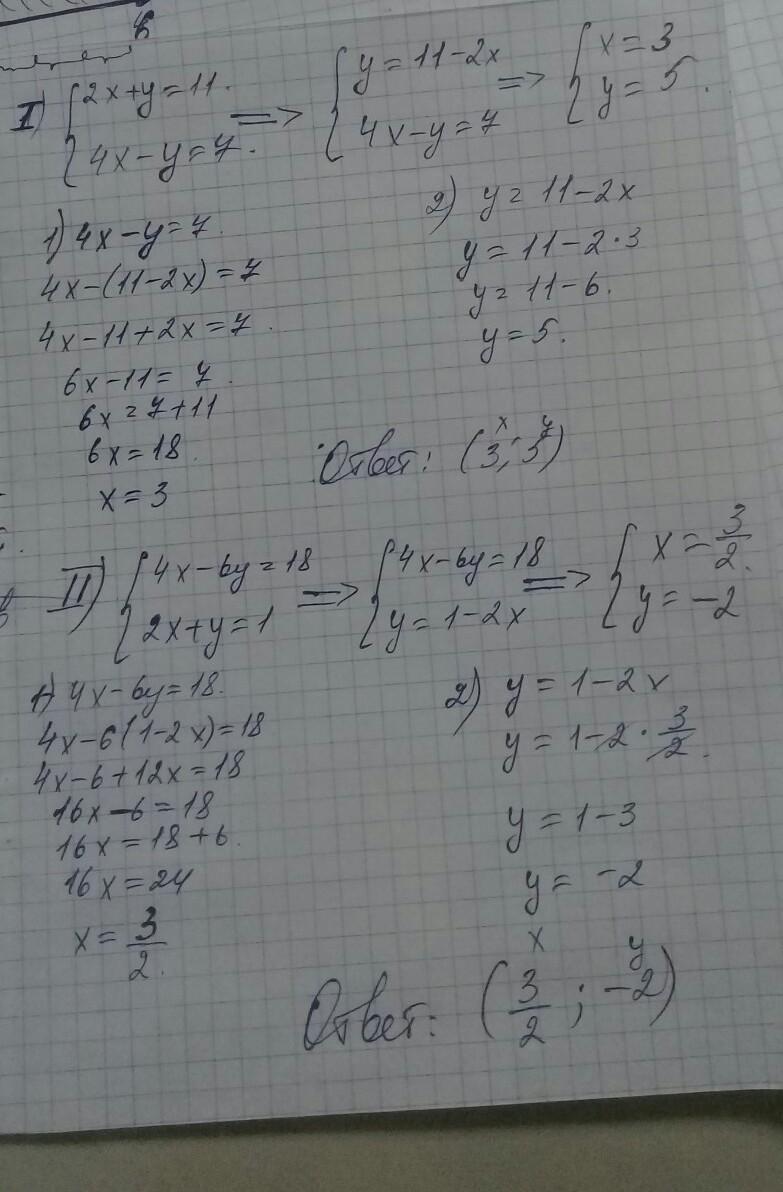 I) {2x+y=11. => {y=11-2x => {x=3
{4x-y=7. {4x-y=7 {y=5.
1) 4x-y=7.
4x-(11-2x)=7
4x-11+2x=7.
6x-11=7.
6x=7+11
6x=18.
x=3
2) y=11-2x
y=11-2·3
y=11-6.
y=5.
x y
Ответ: (3; 5)
II) {4x-6y=18 => {4x-6y=18 => {x=3/2.
{2x+y=1 {y=1-2x {y=-2
1) 4x-6y=18.
4x-6(1-2x)=18
4x-6+12x=18
16x-6=18
16x=18+6.
16x=24
x=3/2.
2) y=1-2x
y=1-2·3/2.
y=1-3
y=-2
x y
Ответ: (3/2; -2)